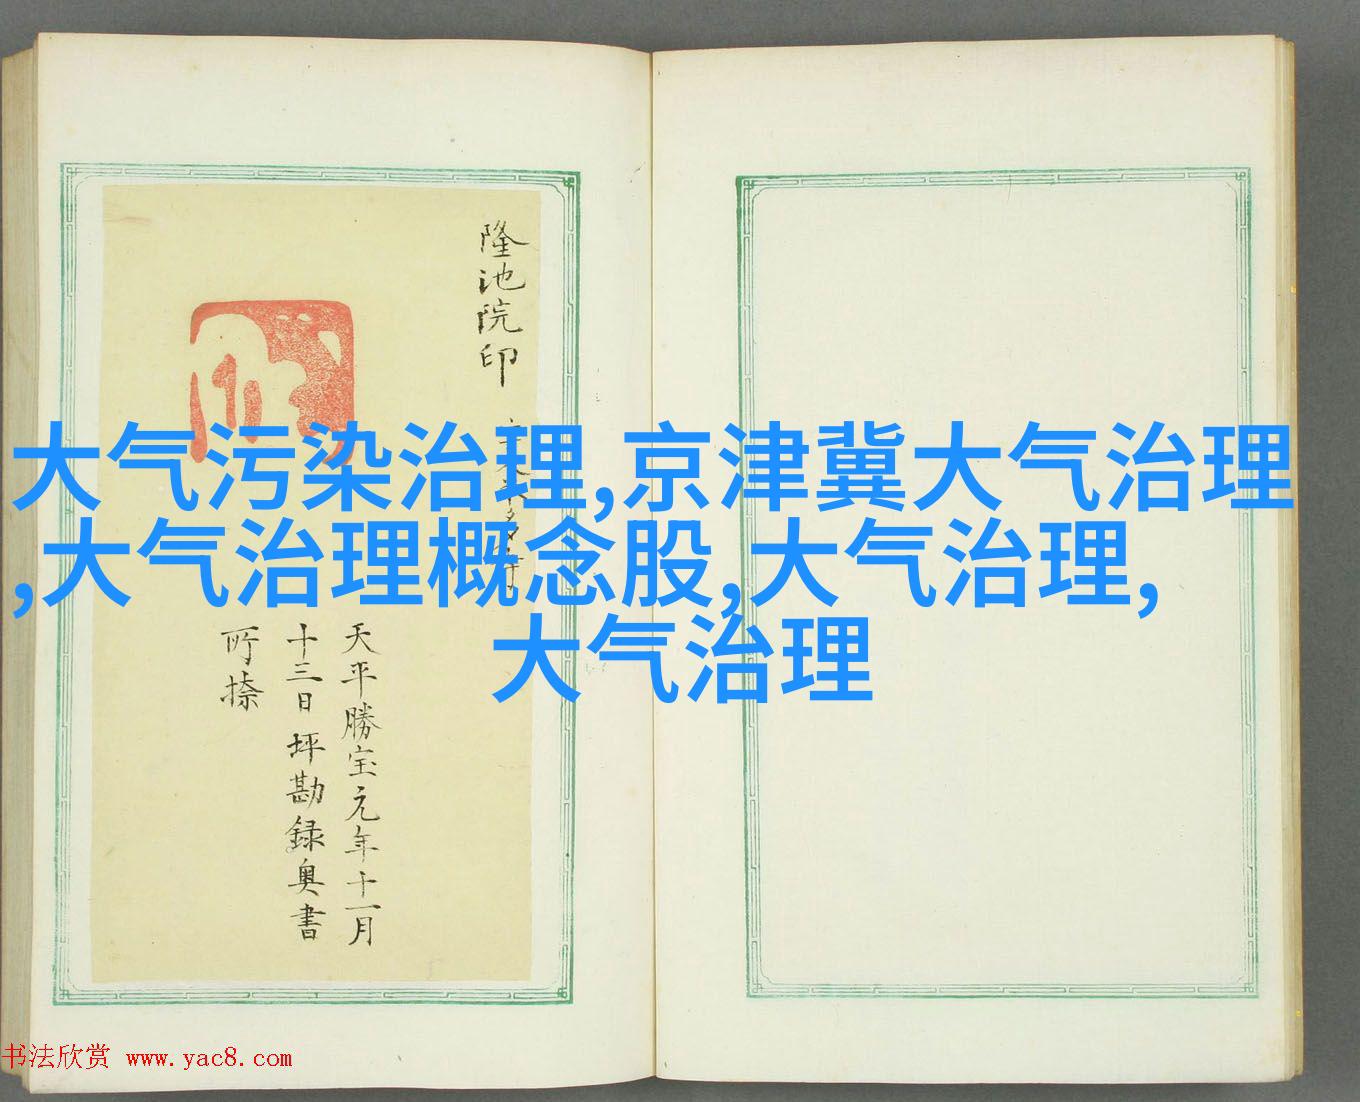 隆池院印
天平勝宝元年十一月
十三日坪勘録奥書
所捺
大气污染治理,京津冀大气治理
,大气治理概念股,大气治理,
大气治理
书法欣赏 www.yac8.com